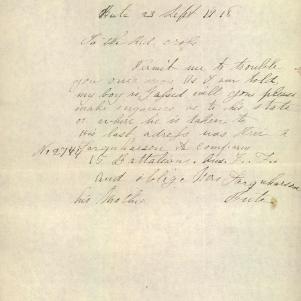 23 Sept 1918
To the Red Cross
Permit me to trouble
you once more As I am told
my boy is gassed will you please
make enquiries as to his state
or where he is taken to
his last adress was
No 2744 Farquharson A Company
15 Battalion Aus. I. F.
and oblige Mrs Farquharson
his Mother